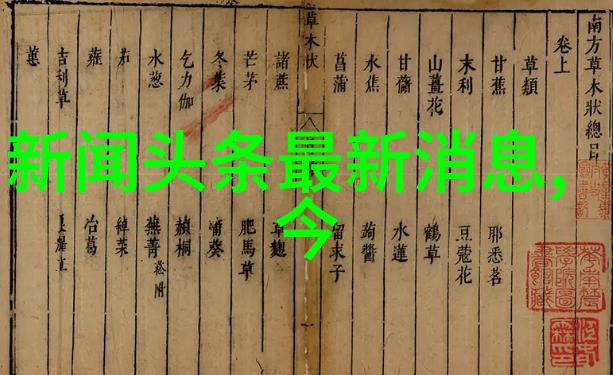 新闻头条最新消息,
今
南方草木狀總目
卷上
草類
甘蕉
耶悉茗
末利
豆蔻花
山薑花
鶴草
甘藷
水蓮
水蕉
蒟醬
菖蒲
留求子
草木狀
諸蔗
草麴
芒茅
肥馬草
冬葉
蒲葵
乞力伽
赬桐
水葱
蕪菁 菘附
茄
綽菜
蕹
冶葛
吉利草
蕙